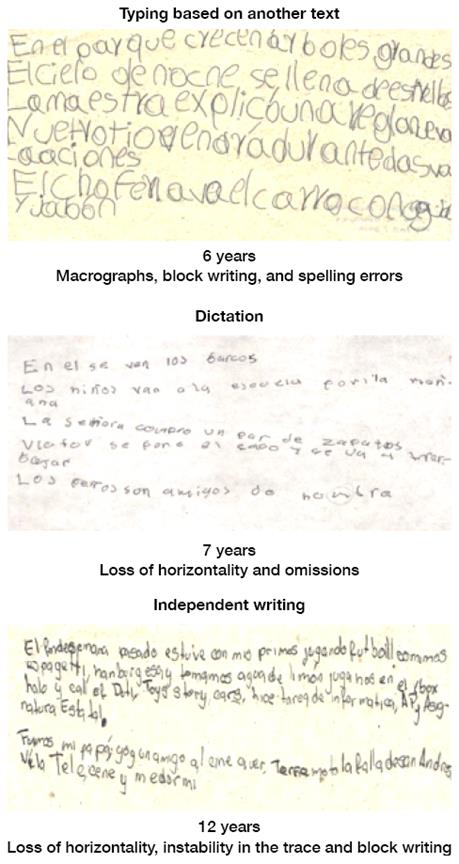 Typing based on another text
En el parque crecen arboles grandes
El cielo de nocne se llena de estrellas
La maestra explicó una regla nueva
Nuetro tio venará durante das va
caciones
El Chofer lava el carro con agua
Y Jabón
6 years
Macrographs, block writing, and spelling errors
Dictation
En el se ven los barcos
Los niños van a la escuela por la mañ-
ana
La señora compro un par de zapatos
se pone el y se va a
bajar
Los perros son amigos de hombra
7 years
Loss of horizontality and omissions
Independent writing
El findesemana pasado estuve con mis primos jugando futboll comimos
espagetti, hanburgessa y tomamos agua de limon jugamos en el xbox
halo y call of Duti, Toys story, cars, hice tarea de informatica, AP y Asig-
natura Estatal.
Fuimos mi papá y yo y un amigo al cine a ver, Terremoto la Falla de san Andres
Vi la Tele, cene y me dormi
12 years
Loss of horizontality, instability in the trace and block writing